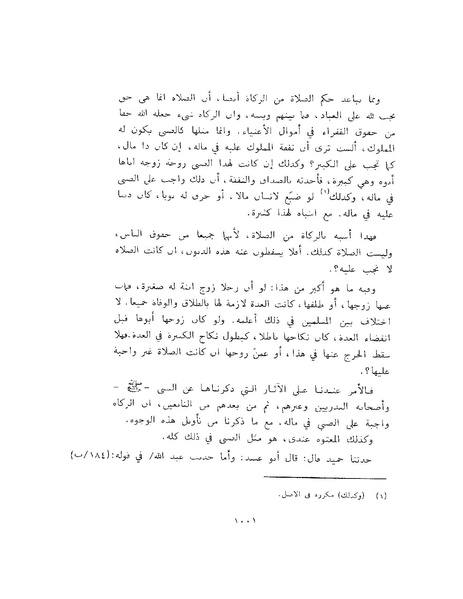 ومما يباعد حكم الصلاة من الزكاة أيضا، أن الصلاة انما هى حق
يجب لله على العباد، فيما بينهم وبينه، وان الزكاة شىء جعله الله حقا
من حقوق الفقراء في أموال الأغنياء. وانما مثلها كالصبى يكون له
المملوك، ألست ترى أن نفقة المملوك عليه في ماله، إن كان ذا مال،
كما تجب على الكبير؟ وكذلك إن كانت لهذا الصبى زوجة زوجه اياها
أبوه وهي كبيرة، فأخذته بالصداق والنفقة، أن ذلك واجب على الصبى
في ماله، وكذلك(١) لو ضيّع لانسان مالا. أو خرق له ثوبا، كان دينا
عليه في ماله. مع اشباه لهذا كثيرة.
فهذا أشبه بالزكاة من الصلاة، لأنها جميعا من حقوق الناس،
وليست الصلاة كذلك. أفلا يسقطون عنه هذه الديون، ان كانت الصلاة
لا تجب عليه؟.
وفيه ما هو أكبر من هذا: لو أن رجلا زوج ابنة له صغيرة، فمات
عنها زوجها، أو طلقها، كانت العدة لازمة لها بالطلاق والوفاة جميعا. لا
اختلاف بين المسلمين في ذلك أعلمه. ولو كان زوجها أبوها قبل
انقضاء العدة، كان نكاحها باطلا، كبطول نكاح الكبيرة في العدة. فهلا
سقط الحرج عنها في هذا، أو عمن زوجها ان كانت الصلاة غير واجبة
عليها؟.
فالأمر عندنا على الآثار التي ذكرناها عن النبي - ﷺ -
وأصحابه البدريين وغيرهم، ثم من بعدهم من التابعين، ان الزكاة
واجبة على الصبي في ماله. مع ما ذكرنا من تأويل هذه الوجوه.
وكذلك المعتوه عندى، هو مثل الصبى في ذلك كله.
حدثنا حميد قال: قال أبو عبيد: وأما حديث عبد الله/ في قوله: (١٨٤/ب)
(١) (وكذلك) مكررة فى الاصل.
١٠٠١